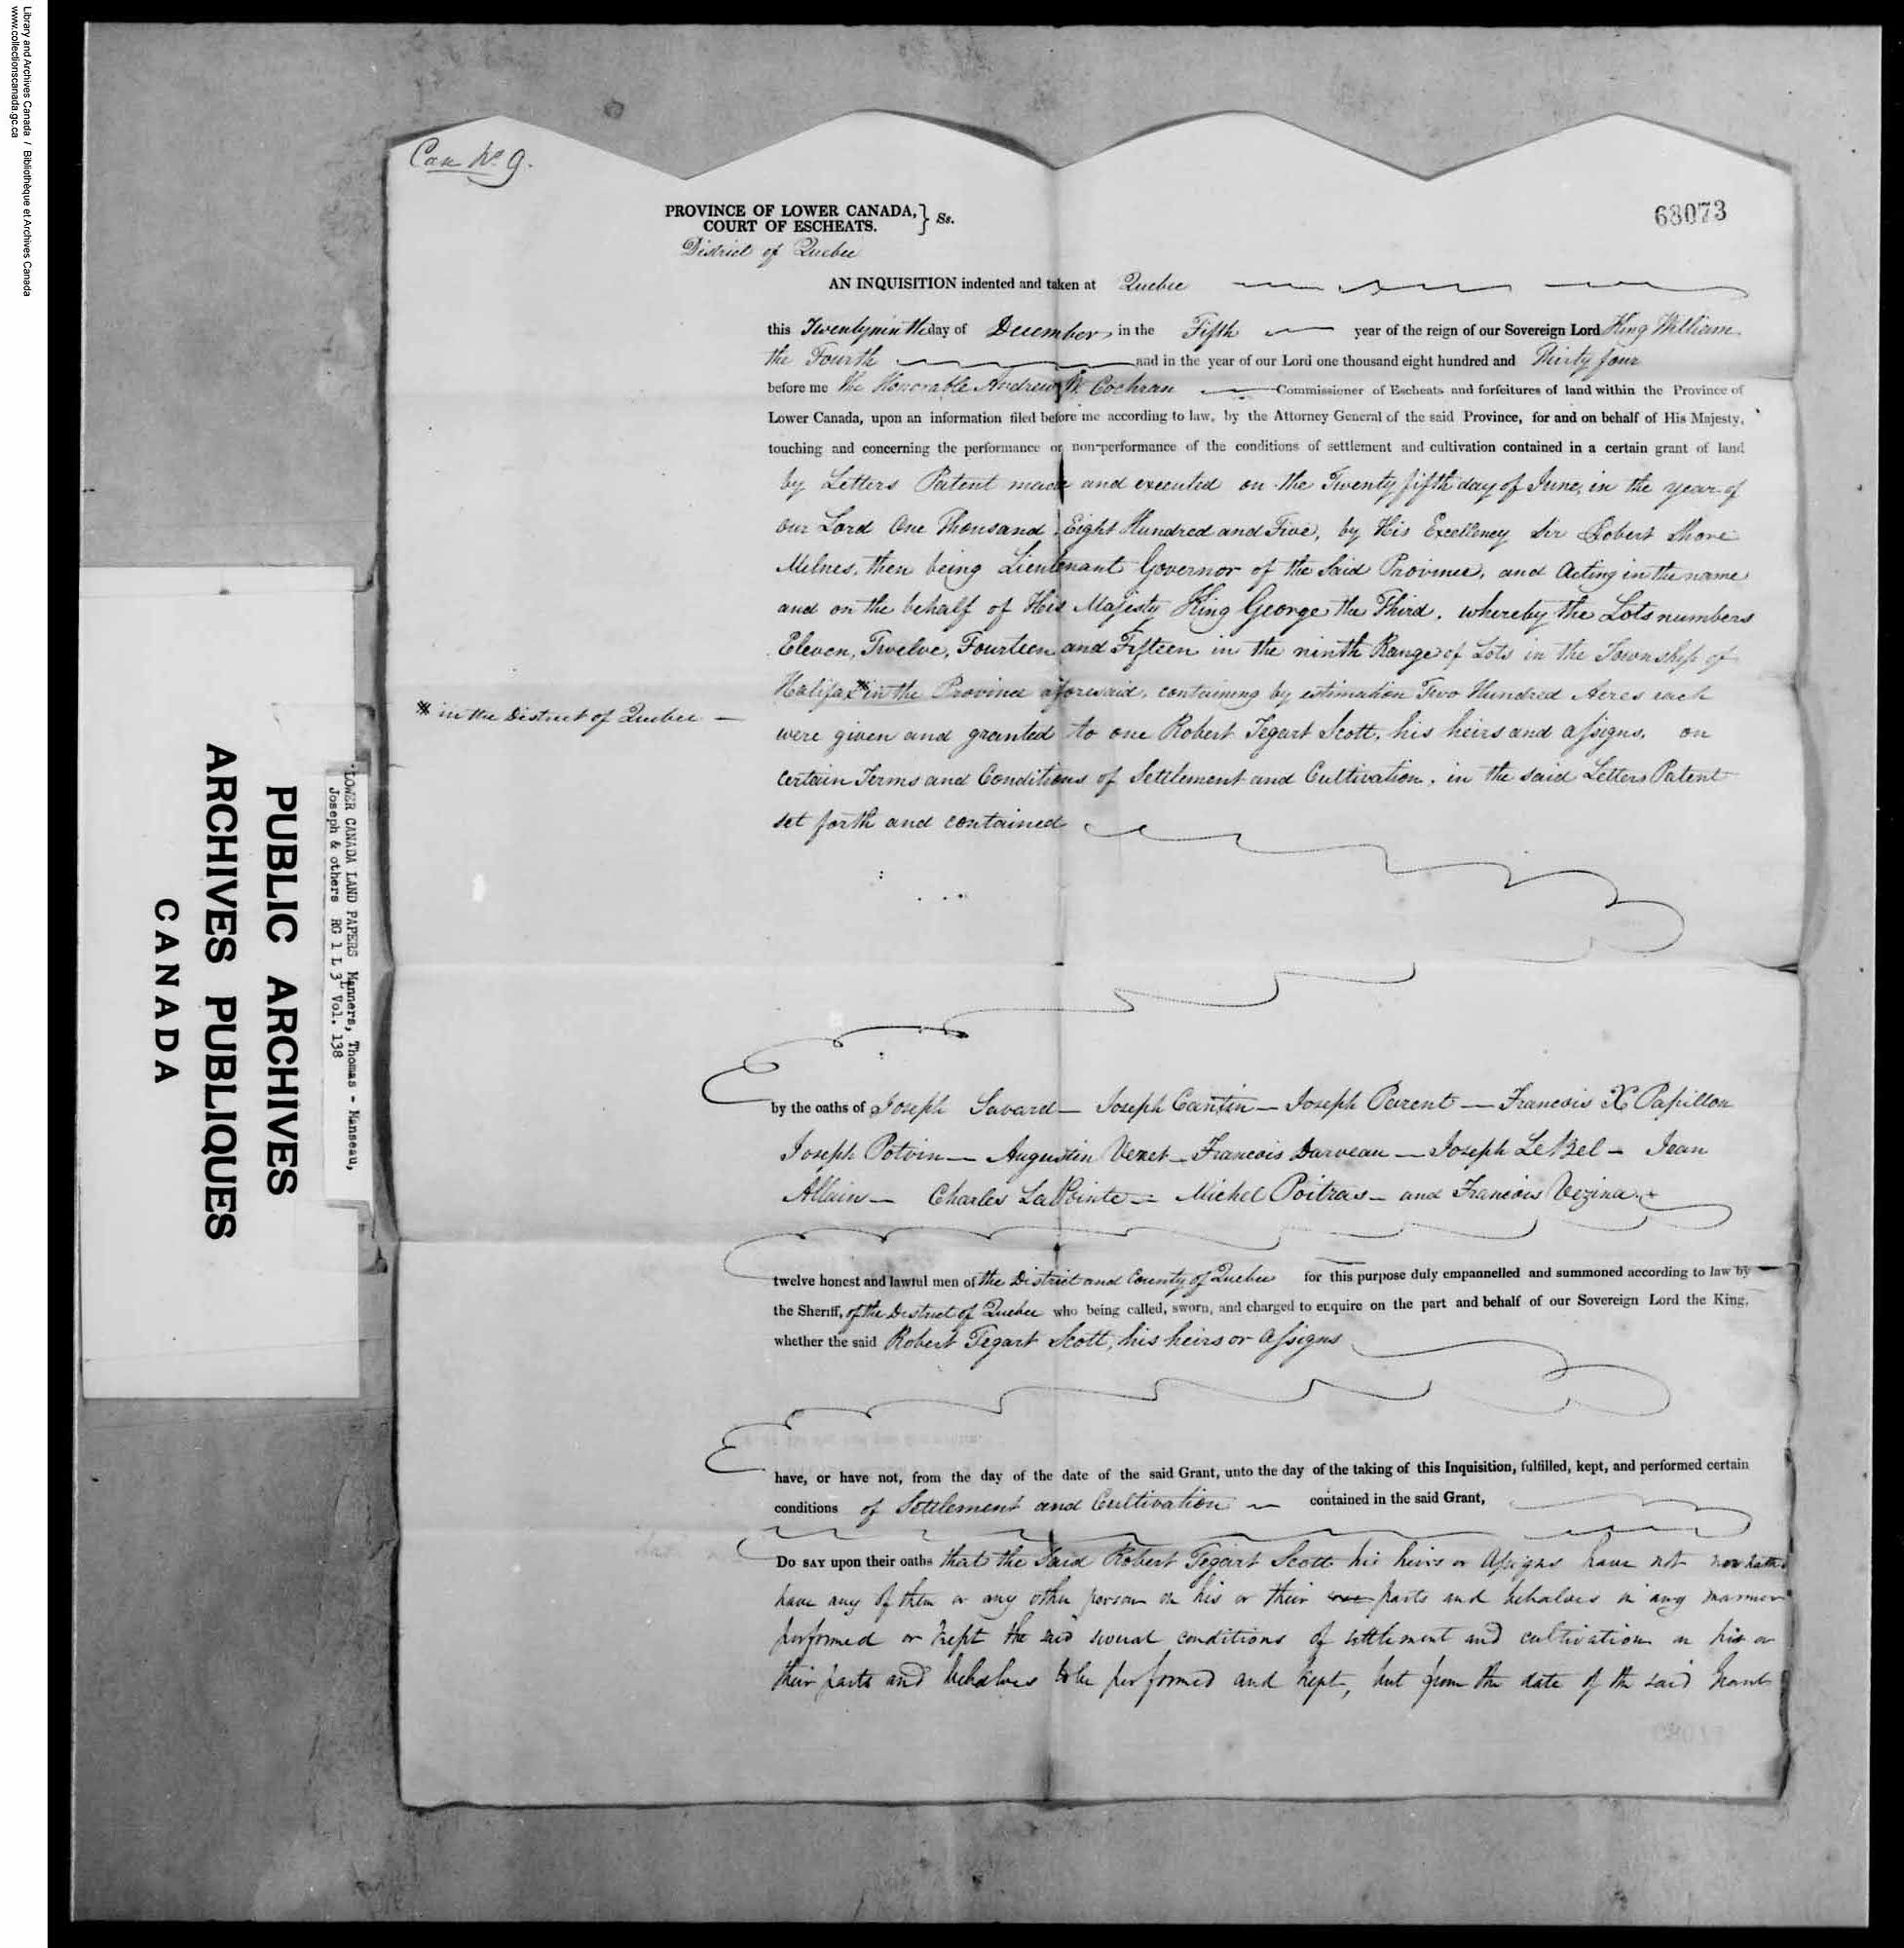 Library and Archives Canada / Bibliothèque et Archives Canada
www.collectionscanada.gc.ca
PUBLIC ARCHIVES
ARCHIVES PUBLIQUES
CANADA
LOWER CANADA LAND PAPERS Manners, Thomas - Manseau,
Joseph & others RG 1 L 3L Vol. 138
Case No. 9.
68073
PROVINCE OF LOWER CANADA, } Ss.
COURT OF ESCHEATS.
District of Quebec
AN INQUISITION indented and taken at Quebec
this Twenty ninth day of December in the Fifth year of the reign of our Sovereign Lord King William
the Fourth and in the year of our Lord one thousand eight hundred and Thirty four
before me the Honorable Andrew W. Cochran Commissioner of Escheats and forfeitures of land within the Province of
Lower Canada, upon an information filed before me according to law, by the Attorney General of the said Province, for and on behalf of His Majesty,
touching and concerning the performance or non-performance of the conditions of settlement and cultivation contained in a certain grant of land
by Letters Patent made and executed on the Twenty fifth day of June, in the year of
our Lord One Thousand Eight Hundred and Five, by His Excellency Sir Robert Shore
Milnes, then being Lieutenant Governor of the Said Province, and Acting in the name
and on the behalf of His Majesty King George the Third, whereby the Lots numbers
Eleven, Twelve, Fourteen and Fifteen in the ninth Range of Lots in the Township of
Halifax * in the Province aforesaid, containing by estimation Two Hundred Acres each
* in the District of Quebec —
were given and granted to one Robert Tegart Scott, his heirs and assigns, on
certain Terms and Conditions of Settlement and Cultivation, in the said Letters Patent
set forth and contained
by the oaths of Joseph Savard — Joseph Cantin — Joseph Parent — Francois X Papillon
Joseph Potvin — Augustin Verret — Francois Darveau — Joseph LeBel — Jean
Allain — Charles LaPointe — Michel Poitras — and Francois Vezina
twelve honest and lawful men of the District and County of Quebec for this purpose duly empannelled and summoned according to law by
the Sheriff, of the District of Quebec who being called, sworn, and charged to enquire on the part and behalf of our Sovereign Lord the King,
whether the said Robert Tegart Scott, his heirs or assigns
have, or have not, from the day of the date of the said Grant, unto the day of the taking of this Inquisition, fulfilled, kept, and performed certain
conditions of Settlement and Cultivation contained in the said Grant,
Do SAY upon their oaths that the said Robert Tegart Scott his heirs or Assigns have not nor hath
have any of them or any other person on his or their parts and behalves in any manner
performed or kept the said several conditions of settlement and cultivation on his or
their parts and behalves to be performed and kept, but from the date of the said Grant